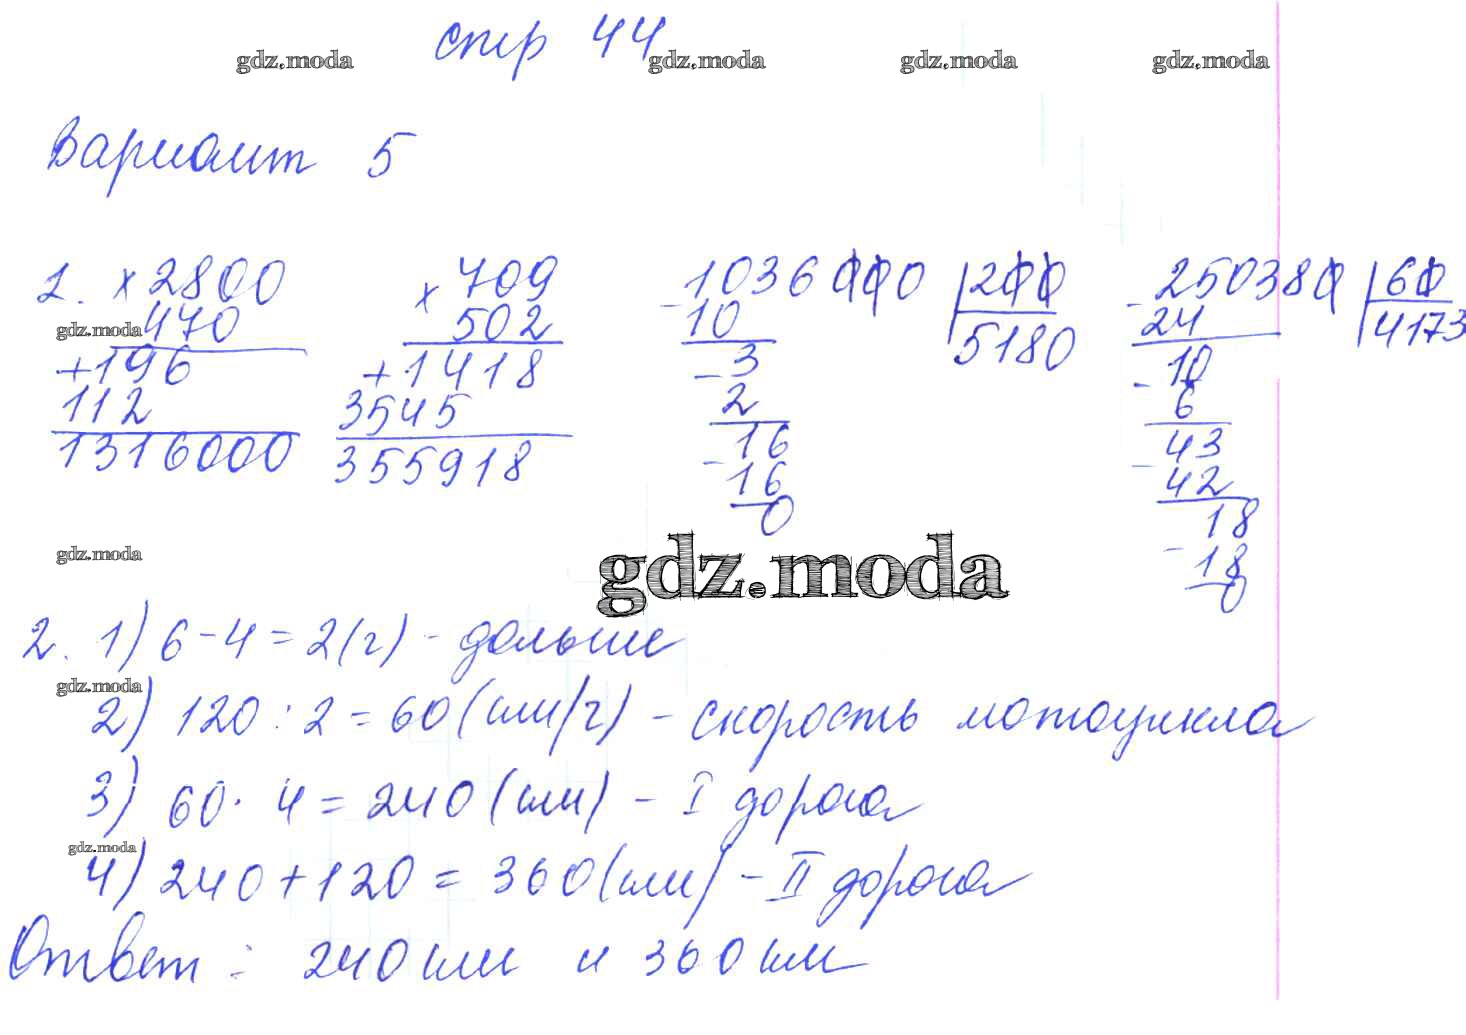 стр 44
gdz.moda gdz.moda gdz.moda gdz.moda
Вариант 5
1. × 2800 × 709 - 1036000 | 200 - 250380 | 60
gdz.moda 470 502 10 5180 24 4173
+ 196 + 1418 - 3 - 10
112 3545 2 6
1316000 355918 - 16 - 43
16 42
0 - 18
18
0
gdz.moda gdz.moda
2. 1) 6 - 4 = 2 (г) - дольше
gdz.moda
2) 120 : 2 = 60 (км/г) - скорость мотоцикла
3) 60 · 4 = 240 (км) - I дорога
gdz.moda
4) 240 + 120 = 360 (км) - II дорога
Ответ : 240 км и 360 км